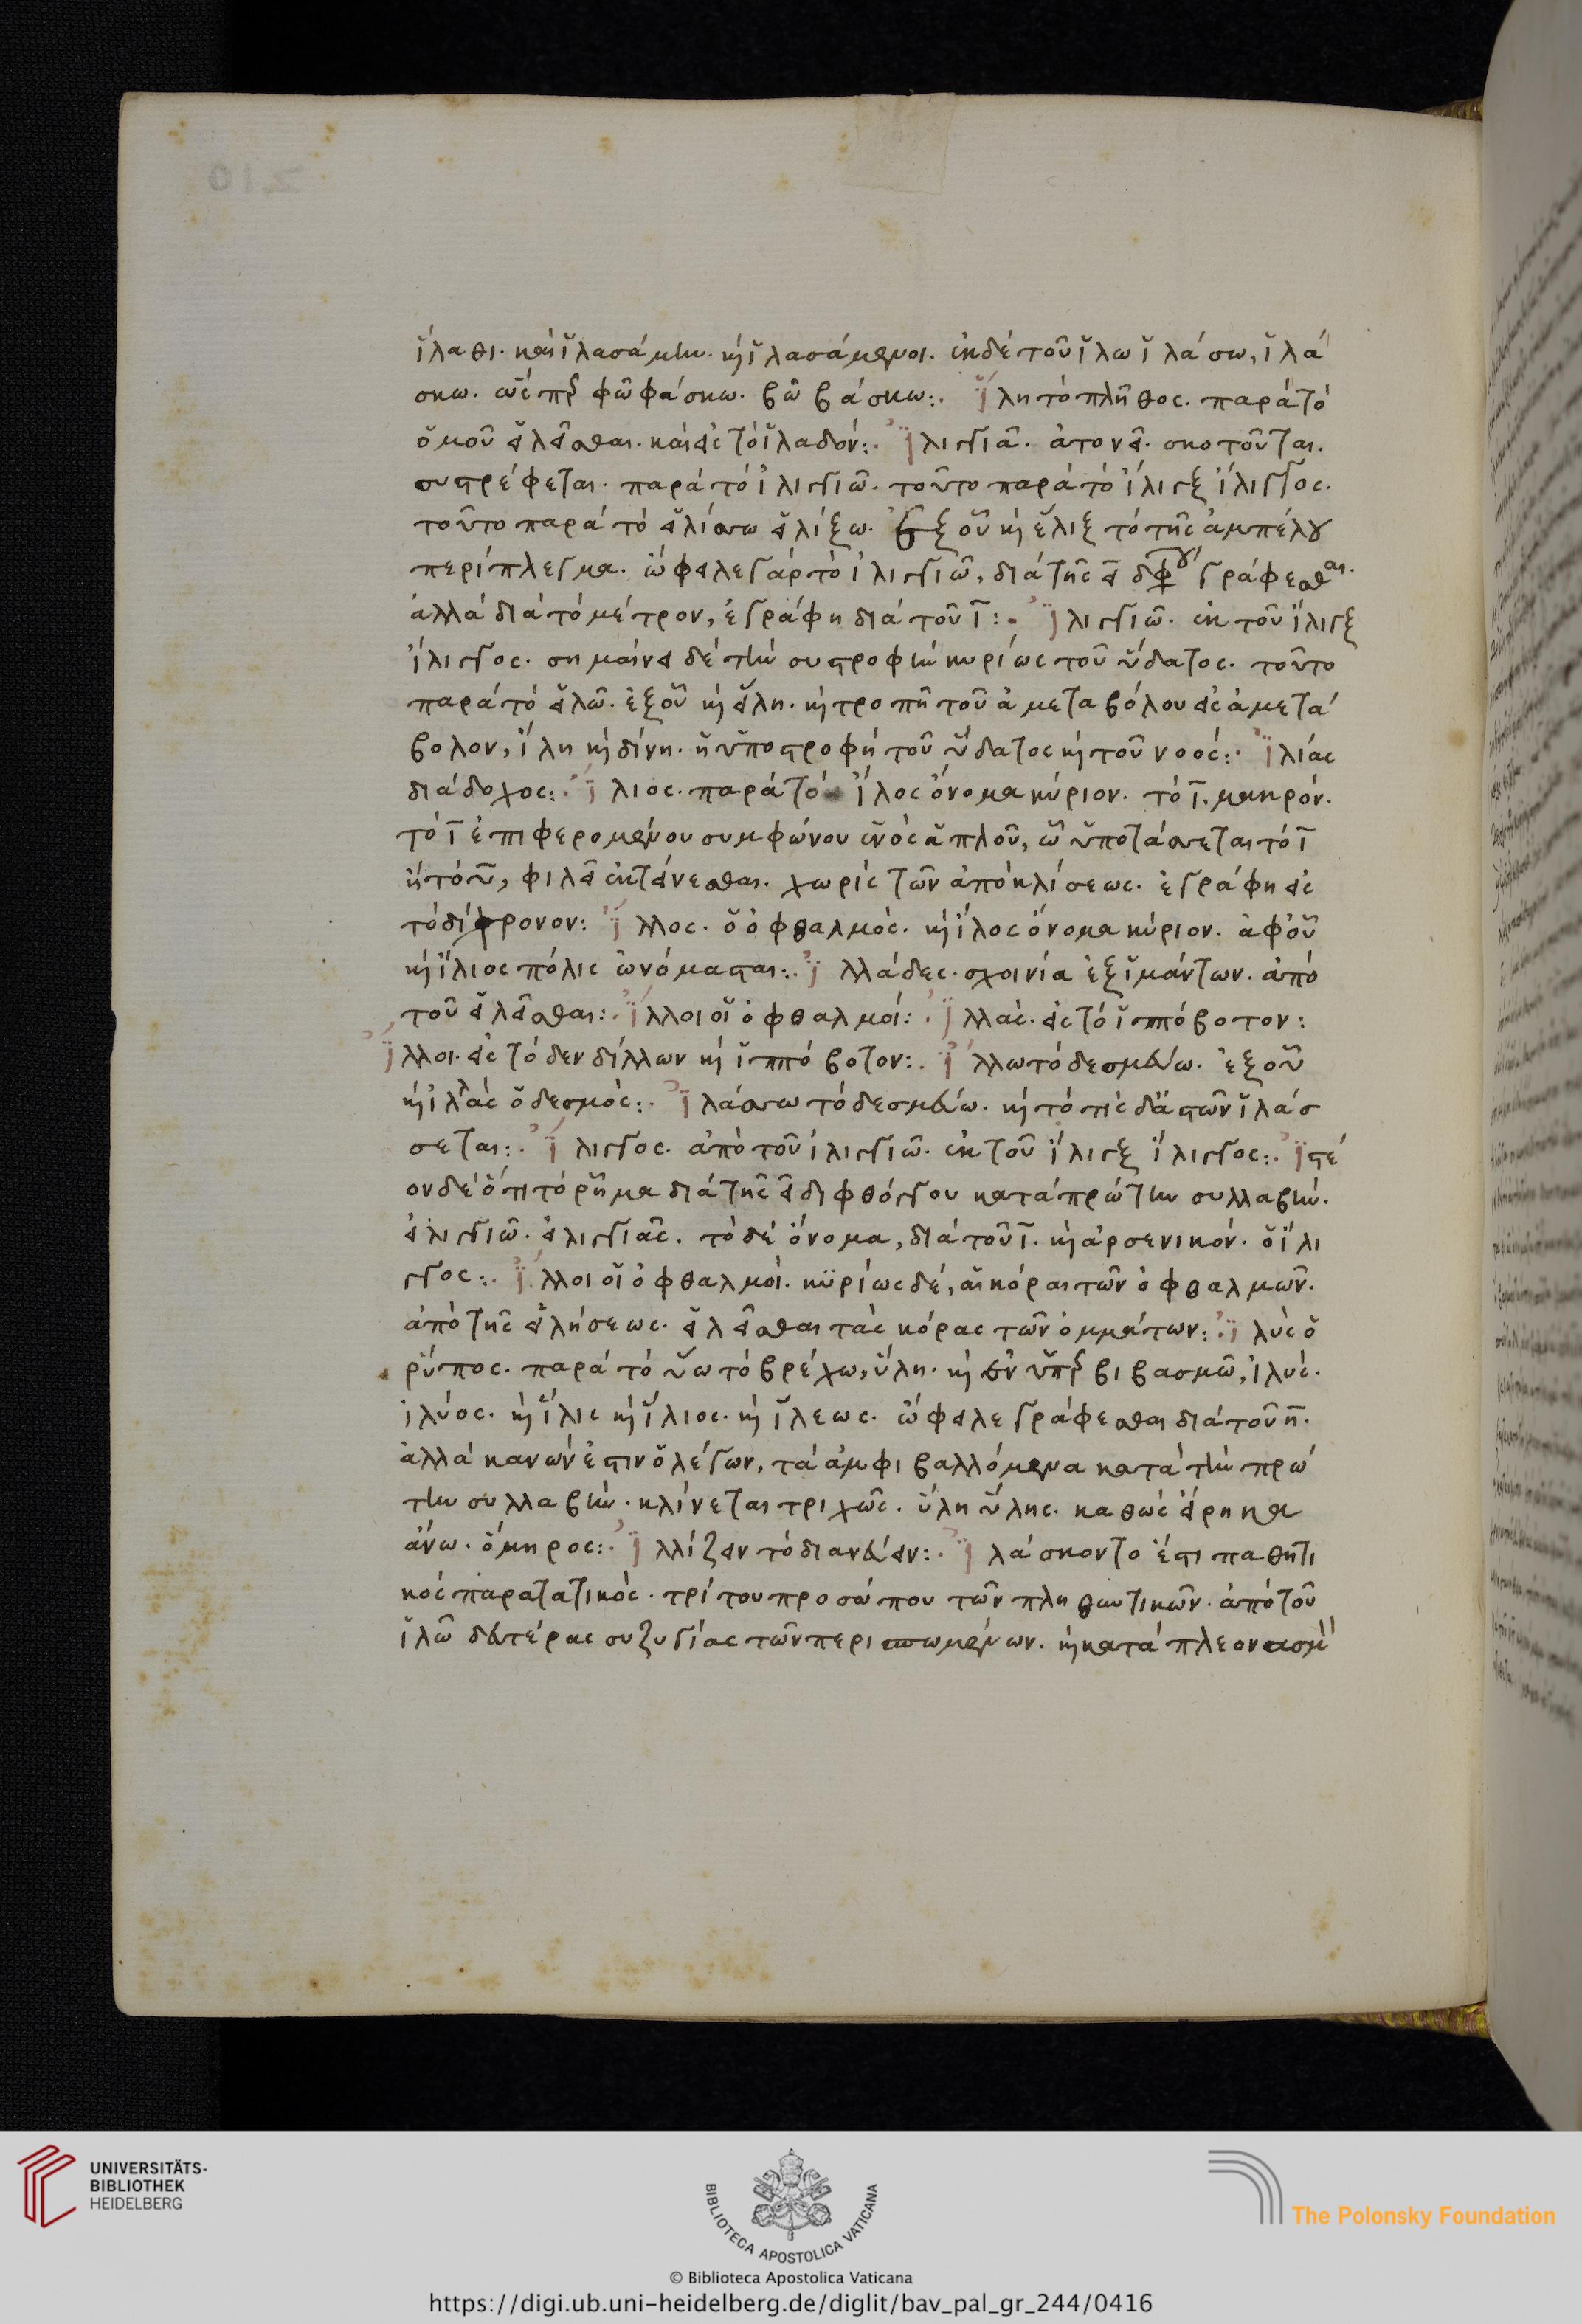 ἵλαθι. καὶ ἱλασάμην. καὶ ἱλασάμενοι. ἐκ δὲ τοῦ ἵλω ἱλάσω, ἱλά
σκω. ὥσπερ φῶ φάσκω. βῶ βάσκω:. Ἴλη τὸ πλῆθος. παρὰ τὸ
ὁμοῦ εἱλεῖσθαι. καὶ εἰς τὸ ἰλαδόν:. Ἰλιγγιᾶ. ἀτονεῖ. σκοτοῦται.
συστρέφεται. παρὰ τὸ ἰλιγγιῶ. τοῦτο παρὰ τὸ ἴλιγξ ἴλιγγος.
τοῦτο παρὰ τὸ εἱλίσσω εἱλίξω. ἐξ οὗ καὶ ἕλιξ τὸ τῆς ἀμπέλου
περίπλεγμα. ὤφειλε γὰρ τὸ ἰλιγγιῶ, διὰ τῆς ει διφθόγγου γράφεσθαι.
ἀλλὰ διὰ τὸ μέτρον, ἐγράφη διὰ τοῦ ι:. Ἰλιγγιῶ. ἐκ τοῦ ἴλιγξ
ἴλιγγος. σημαίνει δὲ τὴν συστροφὴν κυρίως τοῦ ὕδατος. τοῦτο
παρὰ τὸ εἱλῶ. ἐξ οὗ καὶ εἵλη. καὶ τροπῇ τοῦ ἀμεταβόλου εἰς ἀμετά
βολον, ἴλη καὶ δίνη. ἢ ὑποστροφὴ τοῦ ὕδατος καὶ τοῦ νοός:. Ἰλίας
διάδοχος:. Ἴλιος. παρὰ τὸ Ἶλος ὄνομα κύριον. τὸ ι. μακρόν.
τὸ ι ἐπιφερομένου συμφώνου ἑνὸς ἁπλοῦ, ᾧ ὑποτάσσεται τὸ ι
ἢ τὸ υ, φιλεῖ ἐκτείνεσθαι. χωρὶς τῶν ἀπὸ κλίσεως. ἐγράφη εἰς
τὸ δίφρονον: Ἴλλος. ὁ ὀφθαλμός. καὶ ἶλος ὄνομα κύριον. ἀφ' οὗ
καὶ ἴλιος πόλις ὠνόμασται:. Ἰλλάδες. σχοινία ἐξ ἱμάντων. ἀπὸ
τοῦ εἱλεῖσθαι:. Ἴλλοι οἱ ὀφθαλμοί:. Ἰλλάς. εἰς τὸ ἱππόβοτον:
Ἴλλοι. εἰς τὸ δενδίλλων καὶ ἱππόβοτον:. Ἴλλω τὸ δεσμεύω. ἐξ οὗ
καὶ ἰλλὰς ὁ δεσμός:. Ἱλάσσω τὸ δεσμεύω. καὶ τὸ τίς δαιτῶν ἱλάσ
σεται:. Ἴλιγγος. ἀπὸ τοῦ ἰλιγγιῶ. ἐκ τοῦ ἴλιγξ ἴλιγγος:. Ἰστέ
ον δὲ ὅτι τὸ ῥῆμα διὰ τῆς ει διφθόγγου κατὰ πρώτην συλλαβήν.
εἰλιγγιῶ. εἰλιγγιᾶς. τὸ δὲ ὄνομα, διὰ τοῦ ι. καὶ ἀρσενικόν. ὁ ἴλι
γγος:. Ἴλλοι οἱ ὀφθαλμοί. κυρίως δέ, αἱ κόραι τῶν ὀφθαλμῶν.
ἀπὸ τῆς εἱλήσεως. εἱλεῖσθαι τὰς κόρας τῶν ὀμμάτων:. Ἰλὺς ὁ
ῥύπος. παρὰ τὸ ὕω τὸ βρέχω, ὕλη. καὶ ἐν ὑπερβιβασμῷ, ἰλύς.
ἰλύος. καὶ ἵλις καὶ ἵλιος. καὶ ἵλεως. ὤφειλε γράφεσθαι διὰ τοῦ η.
ἀλλὰ κανών ἐστιν ὁ λέγων, τὰ ἀμφιβαλλόμενα κατὰ τὴν πρώ
την συλλαβήν. κλίνεται τριχῶς. ὕλη ὕλης. καθὼς εἴρηκα
ἄνω. ὅμηρος:. Ἰλλίζειν τὸ διανεύειν:. Ἱλάσκοντο ἔστι παθητι
κὸς παρατατικός. τρίτου προσώπου τῶν πληθυντικῶν. ἀπὸ τοῦ
ἱλῶ δευτέρας συζυγίας τῶν περισπωμένων. καὶ κατὰ πλεονασμὸν